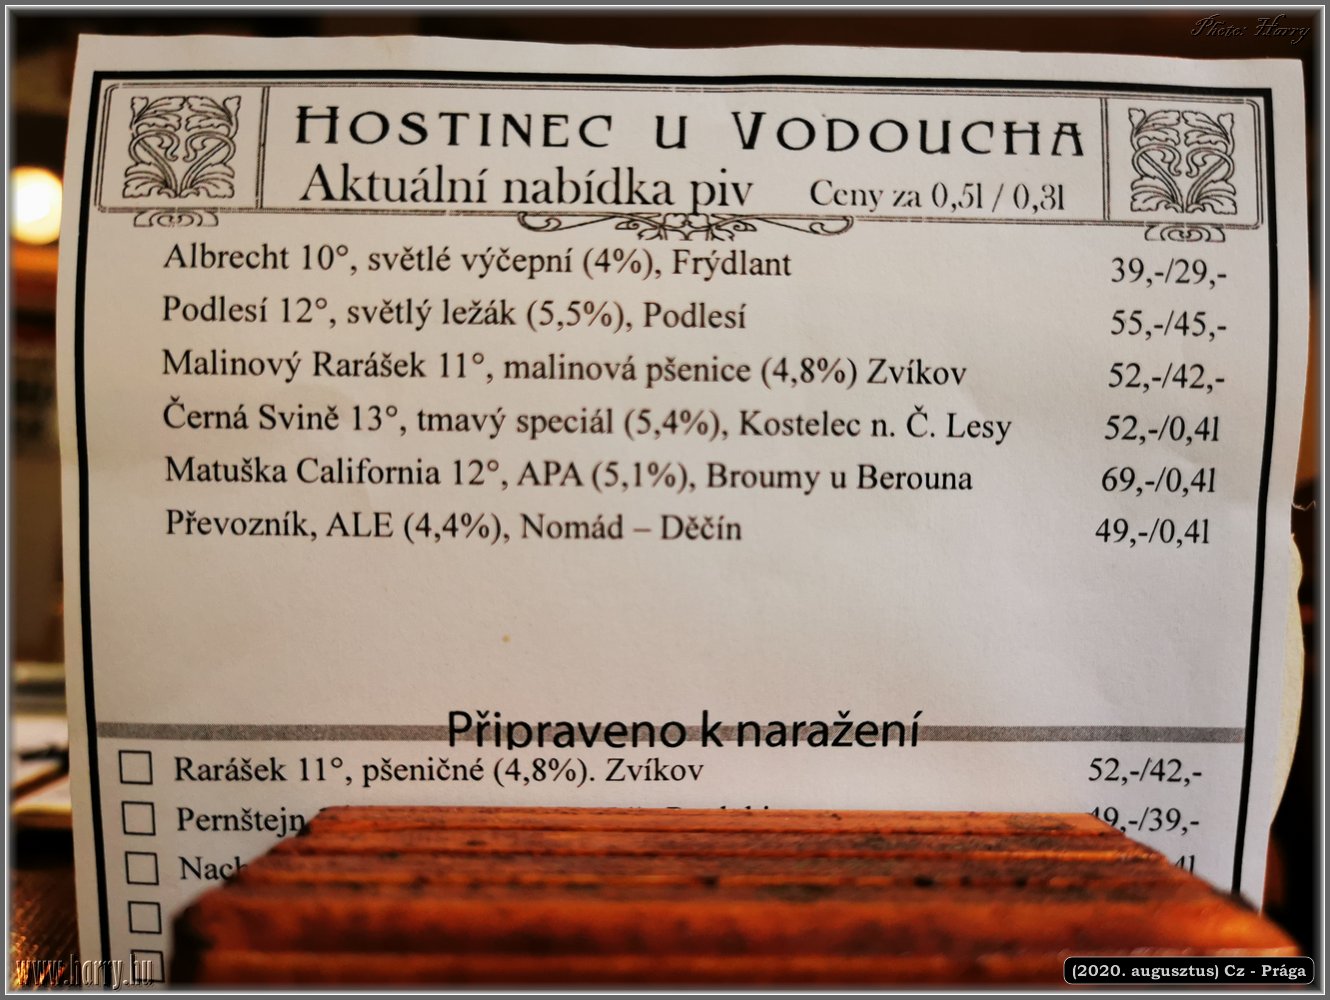 Photo: Harry
HOSTINEC U VODOUCHA
Aktuální nabídka piv Ceny za 0,5l / 0,3l
Albrecht 10°, světlé výčepní (4%), Frýdlant 39,-/29,-
Podlesí 12°, světlý ležák (5,5%), Podlesí 55,-/45,-
Malinový Rarášek 11°, malinová pšenice (4,8%) Zvíkov 52,-/42,-
Černá Svině 13°, tmavý speciál (5,4%), Kostelec n. Č. Lesy 52,-/0,4l
Matuška California 12°, APA (5,1%), Broumy u Berouna 69,-/0,4l
Převozník, ALE (4,4%), Nomád – Děčín 49,-/0,4l
Připraveno k naražení
Rarášek 11°, pšeničné (4,8%). Zvíkov 52,-/42,-
Pernštejn 49,-/39,-
www.harry.hu
(2020. augusztus) Cz - Prága